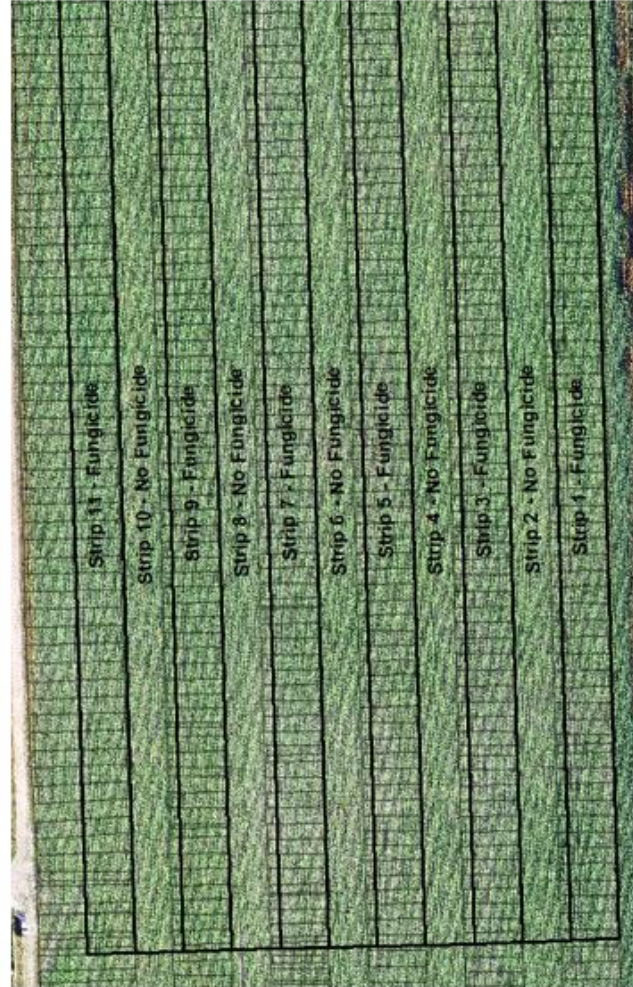 Strip 11 - Fungicide
Strip 10 - No Fungicide
Strip 9 - Fungicide
Strip 8 - No Fungicide
Strip 7 - Fungicide
Strip 6 - No Fungicide
Strip 5 - Fungicide
Strip 4 - No Fungicide
Strip 3 - Fungicide
Strip 2 - No Fungicide
Strip 1 - Fungicide